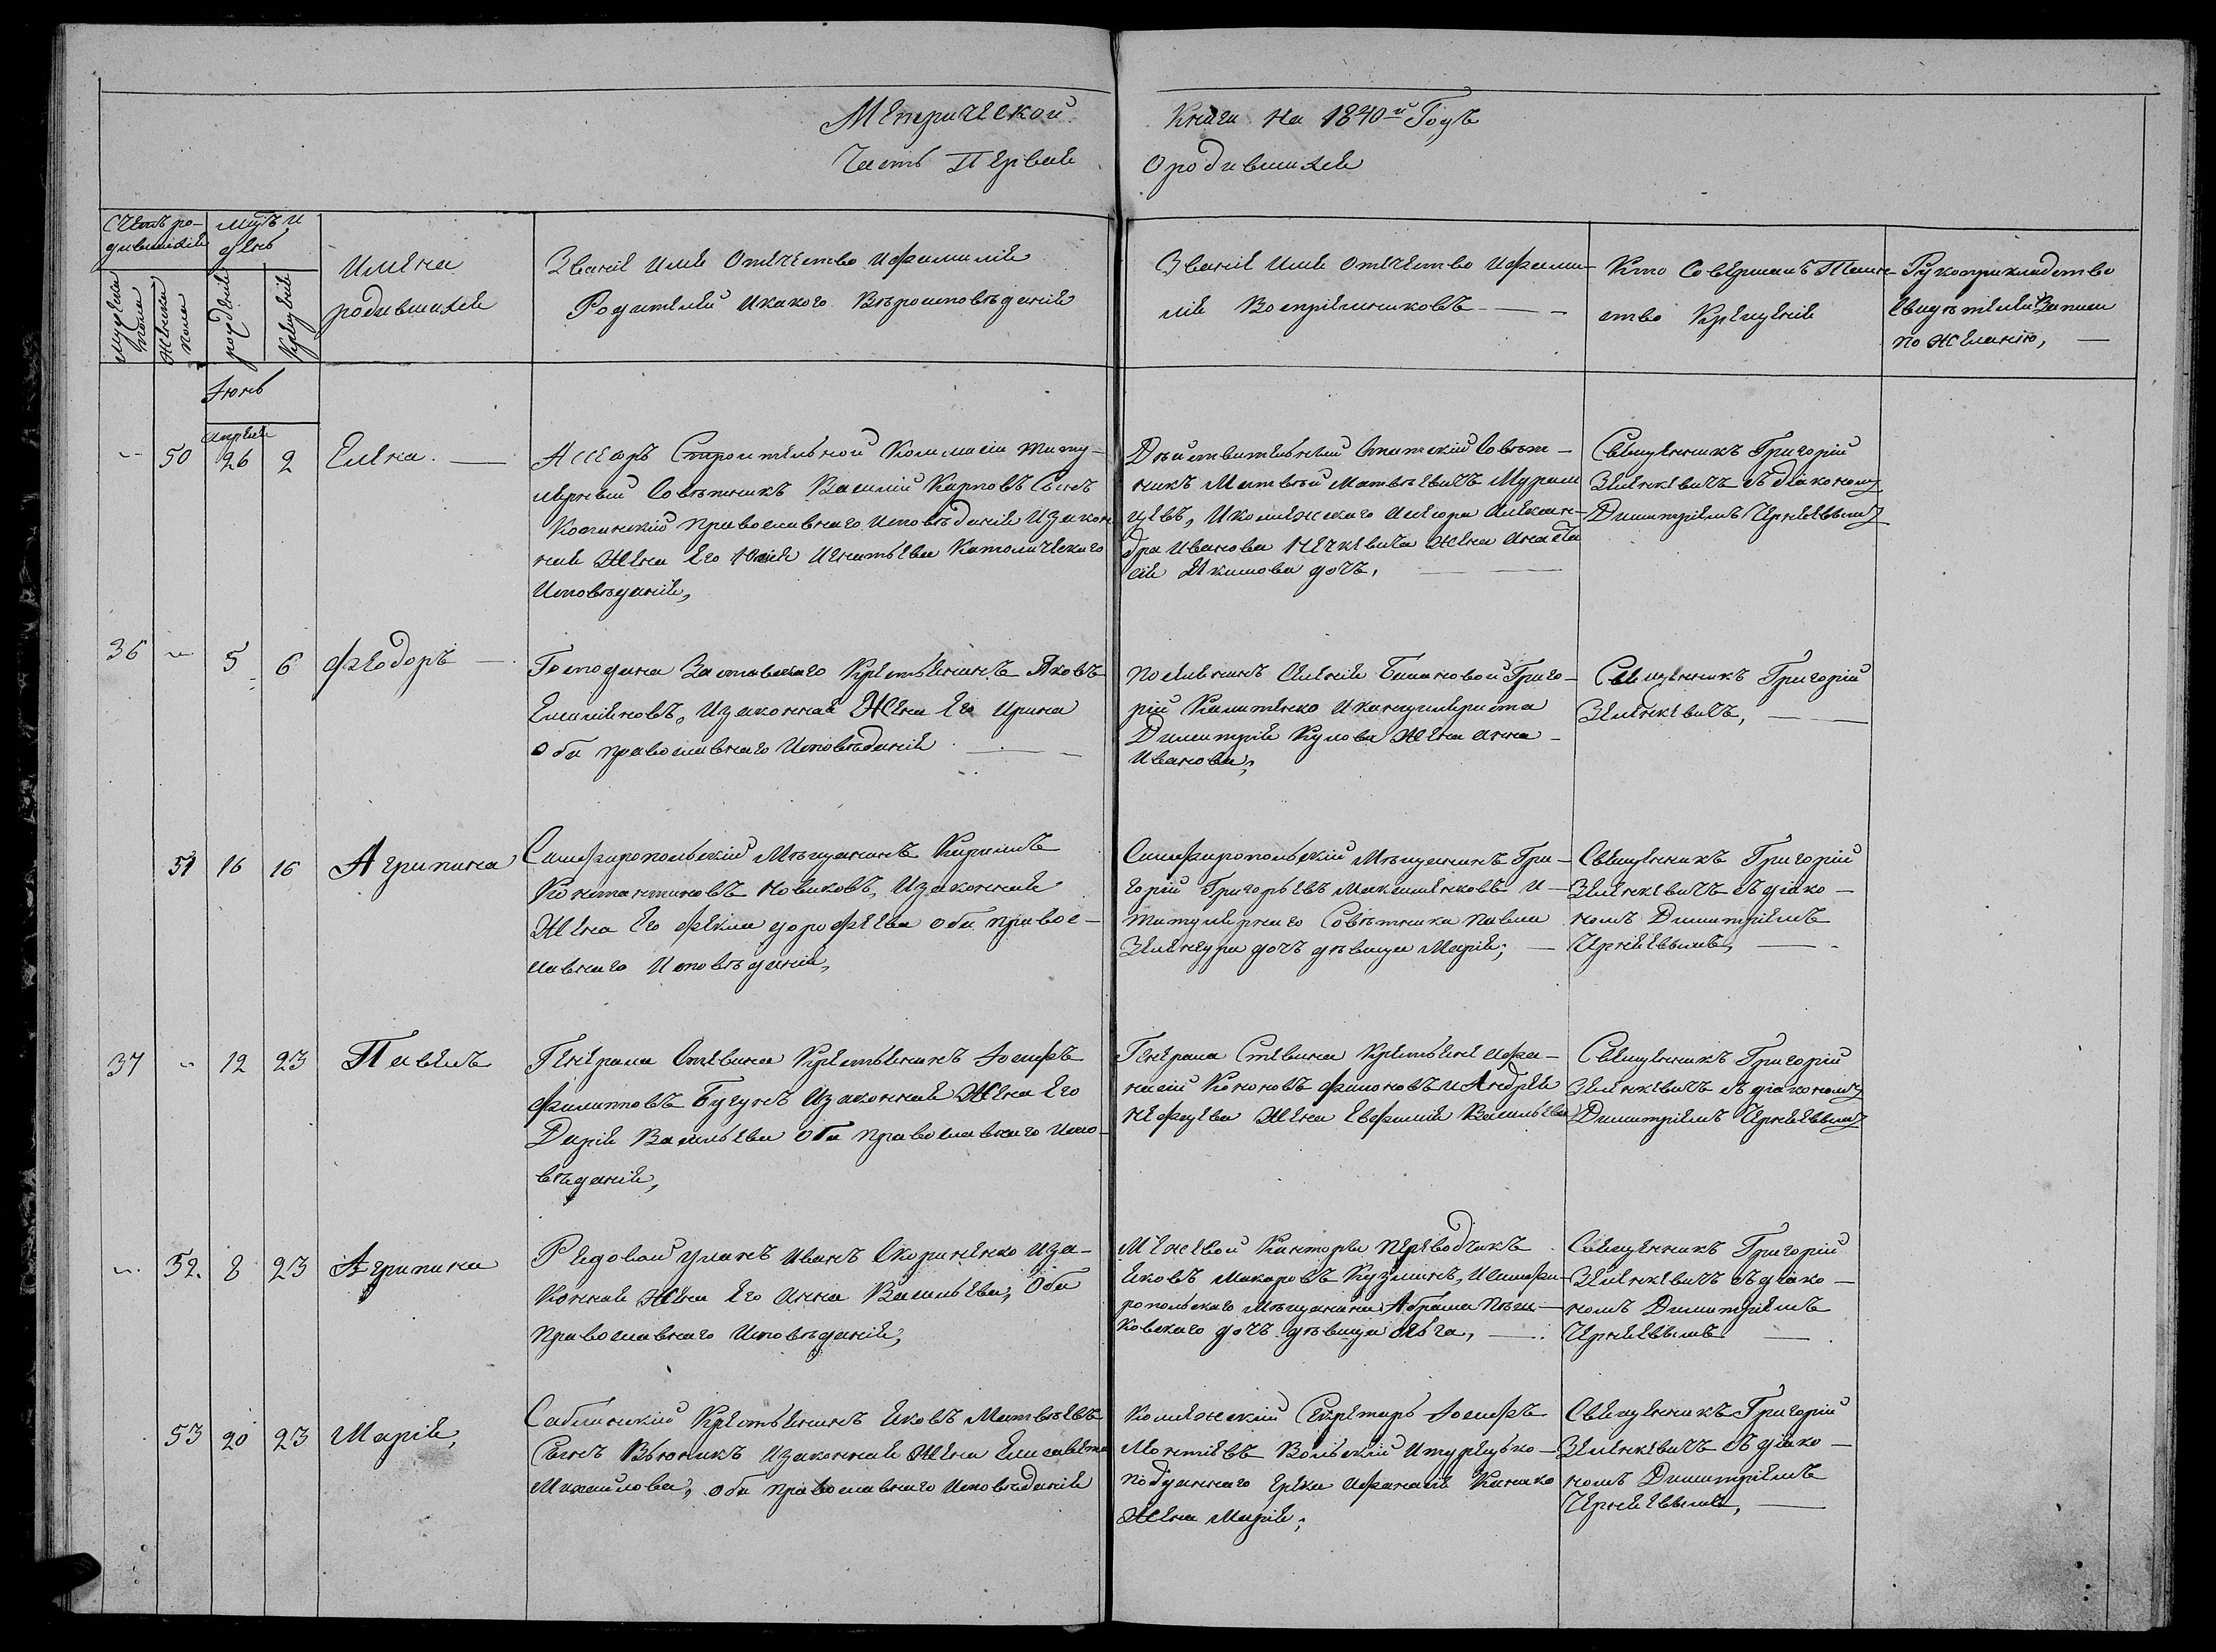 Метрической
Часть Первая
Книги на 1840й Годъ
О родившихся
Счетъ ро-
дившихся
Мужеска
пола
Женска
пола
Мцъ и
день
рожденія
Крещенія
Имена
родившихся
Званіе Имя Отечество и Фамилія
Родителей и какого Вѣроисповѣданія
Званіе Имя Отечество и Фами-
лія Воспріемниковъ
Кто Совершалъ Таин-
ство Крещенія
Рукоприкладство
Свидѣтелей Записи
по желанію,
Іюнь
50
Апреля
26
2
Елена.
Ассесоръ Строительной Комиссіи Титу-
лярный Совѣтникъ Василій Карповъ Сынъ
православнаго исповѣданія И закон-
ная Жена Его Юлія Игнатьева Католическаго
Исповѣданія,
Дѣйствительный Статскій Совѣт-
никъ Матвѣй Матвѣевичъ Муром
цевъ, И колежскаго Асесора Алексан-
дра Иванова Нечкевича Жена Анаста
сія Якимова дочь,
Священникъ Григорій
Зеленкевичъ съ діакономъ
Димитріемъ Чернявымъ
36
5
6
Феодоръ
Господина Заставскаго Крестьянинъ Яковъ
Емиліяновъ, И законная Жена Его Ирина
Оба православнаго Исповѣданія
Поселянинъ Селенія Григо-
рій Калитенко И канцеляриста
Димитрія Кулова Жена Анна
Иванова;
Священникъ Григорій
Зеленкевичъ,
51
16
16
Агрипина
Симферопольскій Мѣщанинъ Кирилъ
Константиновъ Новиковъ, И законная
Жена Его Фекла Дорофеева оба право-
славнаго Исповѣданія,
Симферопольскій Мѣщанинъ Гри-
горій Григорьевъ Максименковъ И
Титулярнаго Совѣтника Павла
дочь дѣвица Марія;
Священникъ Григорій
Зеленкевичъ съ діако-
номъ Димитріемъ
Чернявымъ,
37
12
23
Павелъ
Генерала Стевена Крестьянинъ Іосифъ
Филипповъ Бугунъ И законная Жена Его
Дарія Васильева оба православнаго испо-
вѣданія,
Генерала Стевена Крестьяне Афа-
насій Кононовъ Филоновъ и Андрея
Нефдева Жена Евфимія Васильева
Священникъ Григорій
Зеленкевичъ съ діакономъ
Димитріемъ Чернявымъ
52.
8
23
Агрипина
Рядовой уланъ Иванъ Скориненко И за-
конная Жена Его Анна Васильева, Оба
Православнаго Исповѣданія,
Межевой Канторы переводчикъ
Яковъ Макаровъ Кузминъ, И Симфе-
ропольскаго Мѣщанина Абрама
дочь дѣвица Ольга,
Священникъ Григорій
Зеленкевичъ съ діако-
номъ Димитріемъ
Чернявымъ
53
20
23
Марія,
Саблинскій Крестьянинъ Яковъ Матвѣевъ
Сынъ Вьюникъ И законная Жена Елисавета
Михайлова, оба православнаго Исповѣданія
Колежскій Секретарь Іосифъ
Вольскій И турецко-
подданнаго Грека Афанасія Канако
Жена Марія;
Священникъ Григорій
Зеленкевичъ съ діако-
номъ Димитріемъ
Чернявымъ,